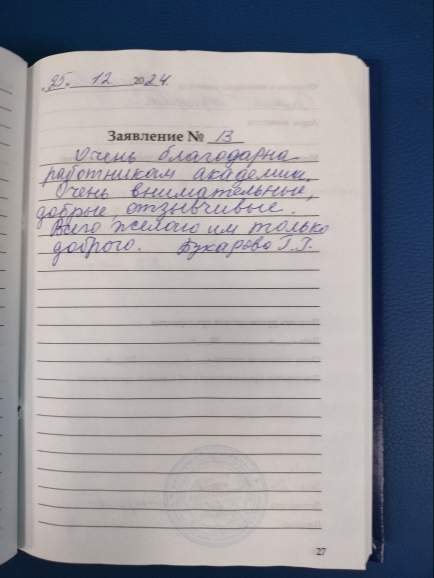 25. 12 2024
Заявление № 13
Очень благодарна
работникам академии.
Очень внимательные,
добрые, отзывчивые.
Всего желаю им только
доброго. Бухарова Г.Г.
27